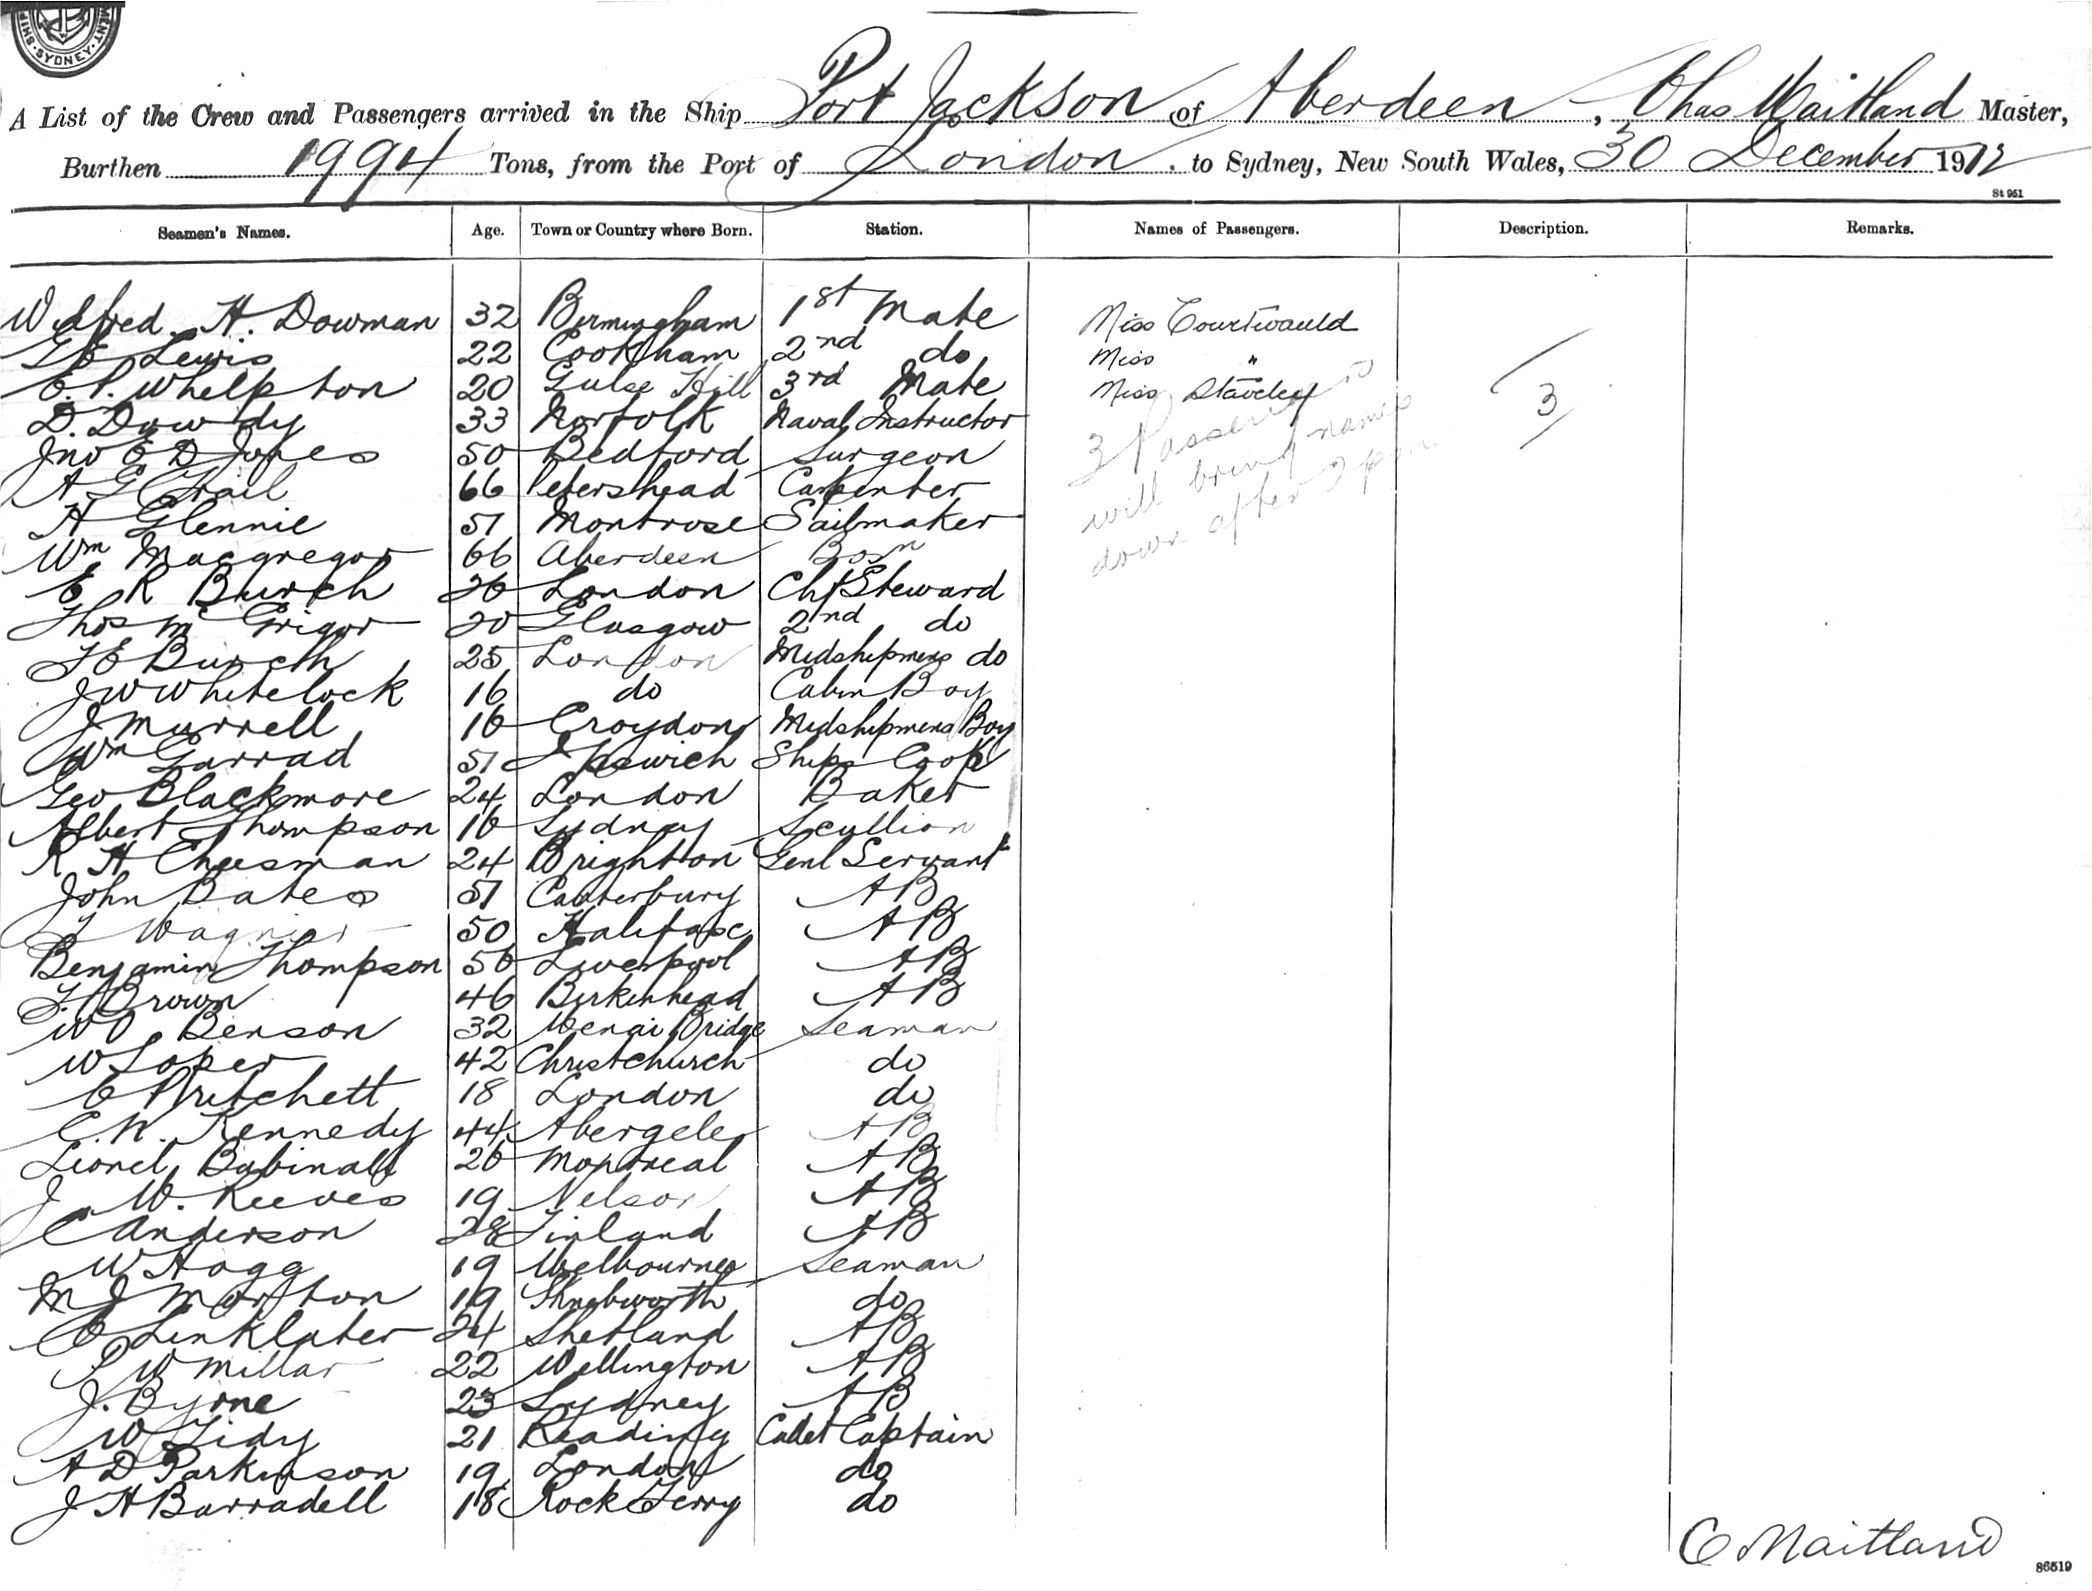 SYDNEY
A List of the Crew and Passengers arrived in the Ship Port Jackson of Aberdeen, Chas Maitland Master,
Burthen 1994 Tons, from the Port of London to Sydney, New South Wales, 30 December 1912
St 961
Seamen's Names. Age. Town or Country where Born. Station. Names of Passengers. Description. Remarks.
Wilfred. H. Dowman 32 Birmingham 1st Mate Miss Courtwauld
G E Lewis 22 Cookham 2nd do Miss "
E. P. Whelpton 20 Gulse Hill 3rd Mate Miss Staveley 3
D. Dowdy 33 Norfolk Naval Instructor
Jno E D Jones 50 Bedford Surgeon
A G Chail 66 Petershead Carpenter
H Glennie 51 Montrose Sailmaker
Wm Macgregor 66 Aberdeen Bosn
E R Burch 26 London Chf Steward
Thos Mc Grigor 20 Glasgow 2nd do
F E Burch 25 London Midshipmens do
J W Whitelock 16 do Cabin Boy
J Murrell 16 Croydon Midshipmens Boy
Wm Garrad 51 Ipswich Ships Cook
Geo Blackmore 24 London Baker
Albert Thompson 16 Sydney Scullion
R H Cheesman 24 Brighton Genl Servant
John Bates 51 Canterbury AB
Wagnier 50 Halifax AB
Benjamin Thompson 56 Liverpool AB
F. Brown 46 Birkenhead AB
W O Benson 32 Menai Bridge Seaman
W Loper 42 Christchurch do
C Pritchett 18 London do
C. W. Kennedy 44 Abergele AB
Lionel Babinall 26 Montreal AB
J W. Reeves 19 Nelson AB
C Anderson 28 Finland AB
W Hogg 19 Melbourne Seaman
M J Morton 19 Knebworth do
C Linklater 24 Shetland AB
P W Millar 22 Wellington AB
J. Byrne 23 Sydney AB
W Tidy 21 Reading Cadet Captain
A D Parkinson 19 London do
J H Barradell 18 Rock Ferry do
3 Passengers
will bring names
down after 2 pm
C Maitland
86519